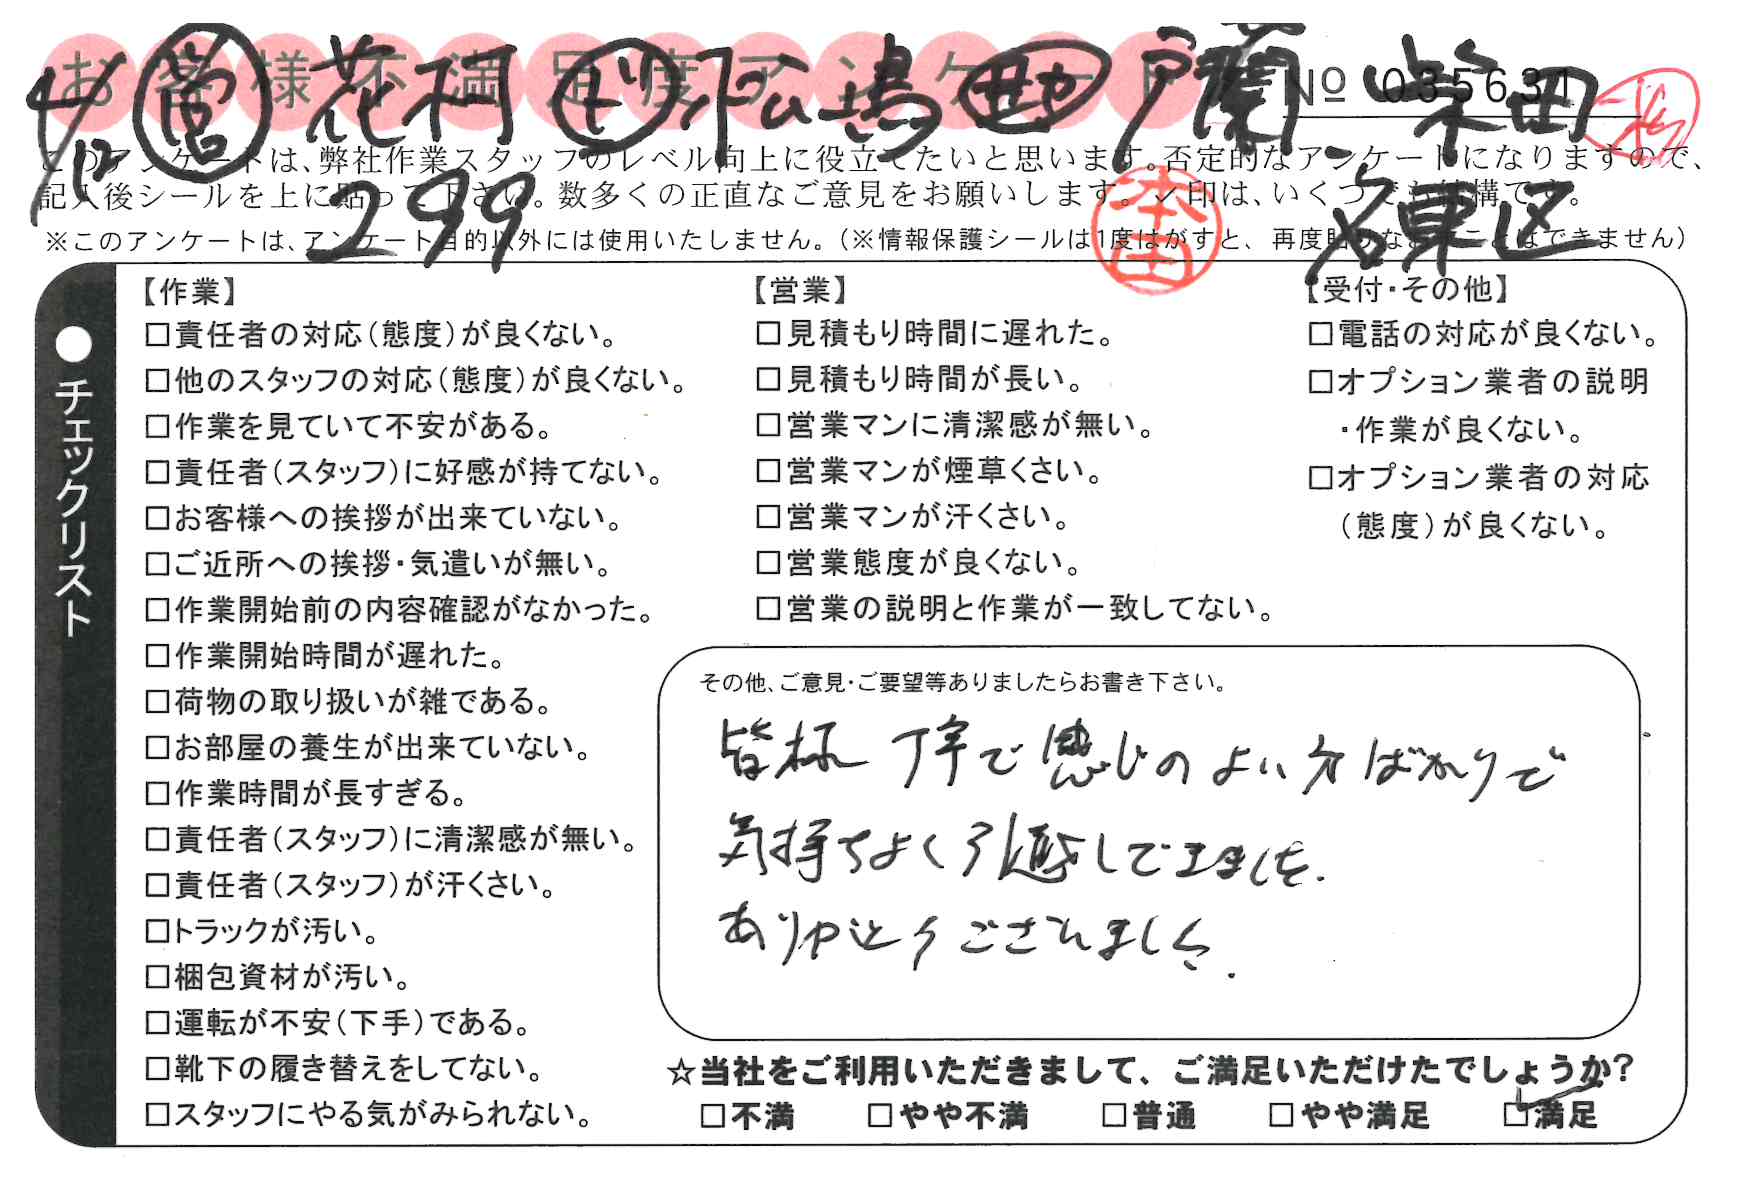 お客様不満足度アンケート
№ 035631
営 花村 ドリ 松嶋 助 戸蘭 柴田
299
本田
名東区
このアンケートは、弊社作業スタッフのレベル向上に役立てたいと思います。否定的なアンケートになりますので、
記入後シールを上に貼って下さい。数多くの正直なご意見をお願いします。レ印は、いくつでも結構です。
※このアンケートは、アンケート目的以外には使用いたしません。（※情報保護シールは1度はがすと、再度貼りなおすことはできません）
●チェックリスト
【作業】
□責任者の対応（態度）が良くない。
□他のスタッフの対応（態度）が良くない。
□作業を見ていて不安がある。
□責任者（スタッフ）に好感が持てない。
□お客様への挨拶が出来ていない。
□ご近所への挨拶・気遣いが無い。
□作業開始前の内容確認がなかった。
□作業開始時間が遅れた。
□荷物の取り扱いが雑である。
□お部屋の養生が出来ていない。
□作業時間が長すぎる。
□責任者（スタッフ）に清潔感が無い。
□責任者（スタッフ）が汗くさい。
□トラックが汚い。
□梱包資材が汚い。
□運転が不安（下手）である。
□靴下の履き替えをしてない。
□スタッフにやる気がみられない。
【営業】
□見積もり時間に遅れた。
□見積もり時間が長い。
□営業マンに清潔感が無い。
□営業マンが煙草くさい。
□営業マンが汗くさい。
□営業態度が良くない。
□営業の説明と作業が一致してない。
【受付・その他】
□電話の対応が良くない。
□オプション業者の説明
・作業が良くない。
□オプション業者の対応
（態度）が良くない。
その他、ご意見・ご要望等ありましたらお書き下さい。
皆様 丁寧で感じのよい方ばかりで
気持ちよく引越しできました.
ありがとうございました.
☆当社をご利用いただきまして、ご満足いただけたでしょうか?
□不満 □やや不満 □普通 □やや満足 ☑満足